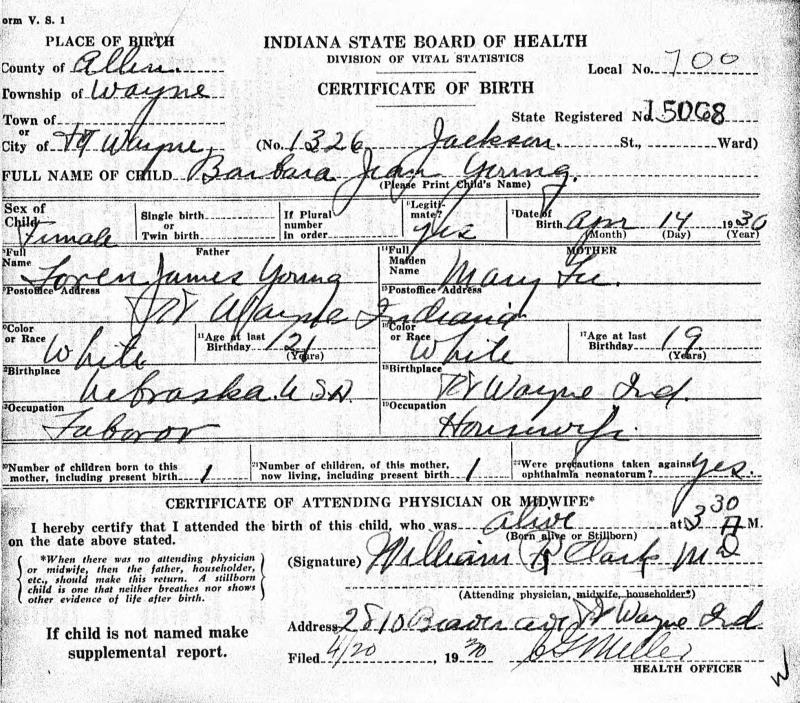 orm V. S. 1
PLACE OF BIRTH
INDIANA STATE BOARD OF HEALTH
DIVISION OF VITAL STATISTICS
County of Allen
Local No. 700
Township of Wayne
CERTIFICATE OF BIRTH
Town of
State Registered No. 15068
or
City of Ft Wayne (No. 1326 Jackson St., Ward)
FULL NAME OF CHILD Barbara Jean Young.
(Please Print Child's Name)
Sex of Child Female
Single birth or Twin birth
If Plural number in order
Legitimate? yes
Date of Birth Apr 14 1930
(Month) (Day) (Year)
Full Name Father Loren James Young
Full Maiden Name MOTHER Mary
Postoffice Address Postoffice Address
Ft Wayne Indiana
Color or Race White Age at last Birthday 21 (Years)
Color or Race White Age at last Birthday 19 (Years)
Birthplace Nebraska. U S A.
Birthplace Ft Wayne Ind.
Occupation Laboror
Occupation Housewife.
Number of children born to this mother, including present birth 1
Number of children, of this mother, now living, including present birth 1
Were precautions taken against ophthalmia neonatorum? yes.
CERTIFICATE OF ATTENDING PHYSICIAN OR MIDWIFE*
I hereby certify that I attended the birth of this child, who was alive at 3 30 A M.
(Born alive or Stillborn)
on the date above stated.
*When there was no attending physician
or midwife, then the father, householder,
etc., should make this return. A stillborn
child is one that neither breathes nor shows
other evidence of life after birth.
(Signature) William R Clark MD
(Attending physician, midwife, householder*)
Address 2810 Beaver ave Ft Wayne Ind
If child is not named make
supplemental report.
Filed 4/20, 1930
HEALTH OFFICER